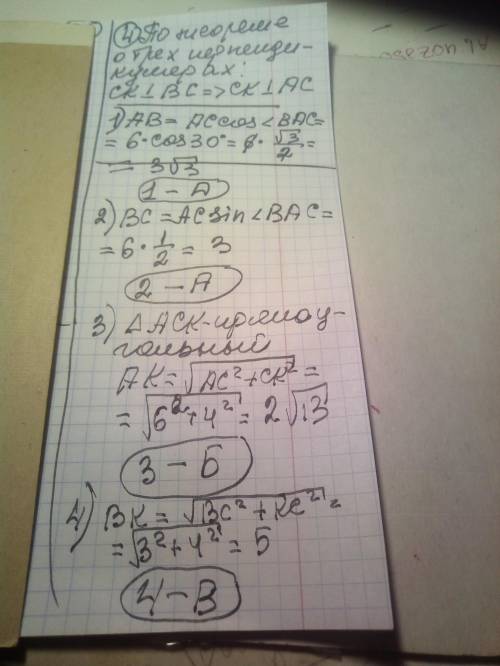 4) По теореме
о трех перпенди-
кулярах:
CK⊥BC=>CK⊥AC
1) AB = AC cos<BAC=
= 6·cos30°= 6·√3/2=
= 3√3
1 – А
2) BC = AC sin<BAC=
= 6·1/2 = 3
2 – А
3) ΔACK-прямоу-
гольный
AK=√AC²+CK² =
= √6²+4² = 2√13
3 – Б
4) BK = √BC²+KC² =
= √3²+4² = 5
4 – В